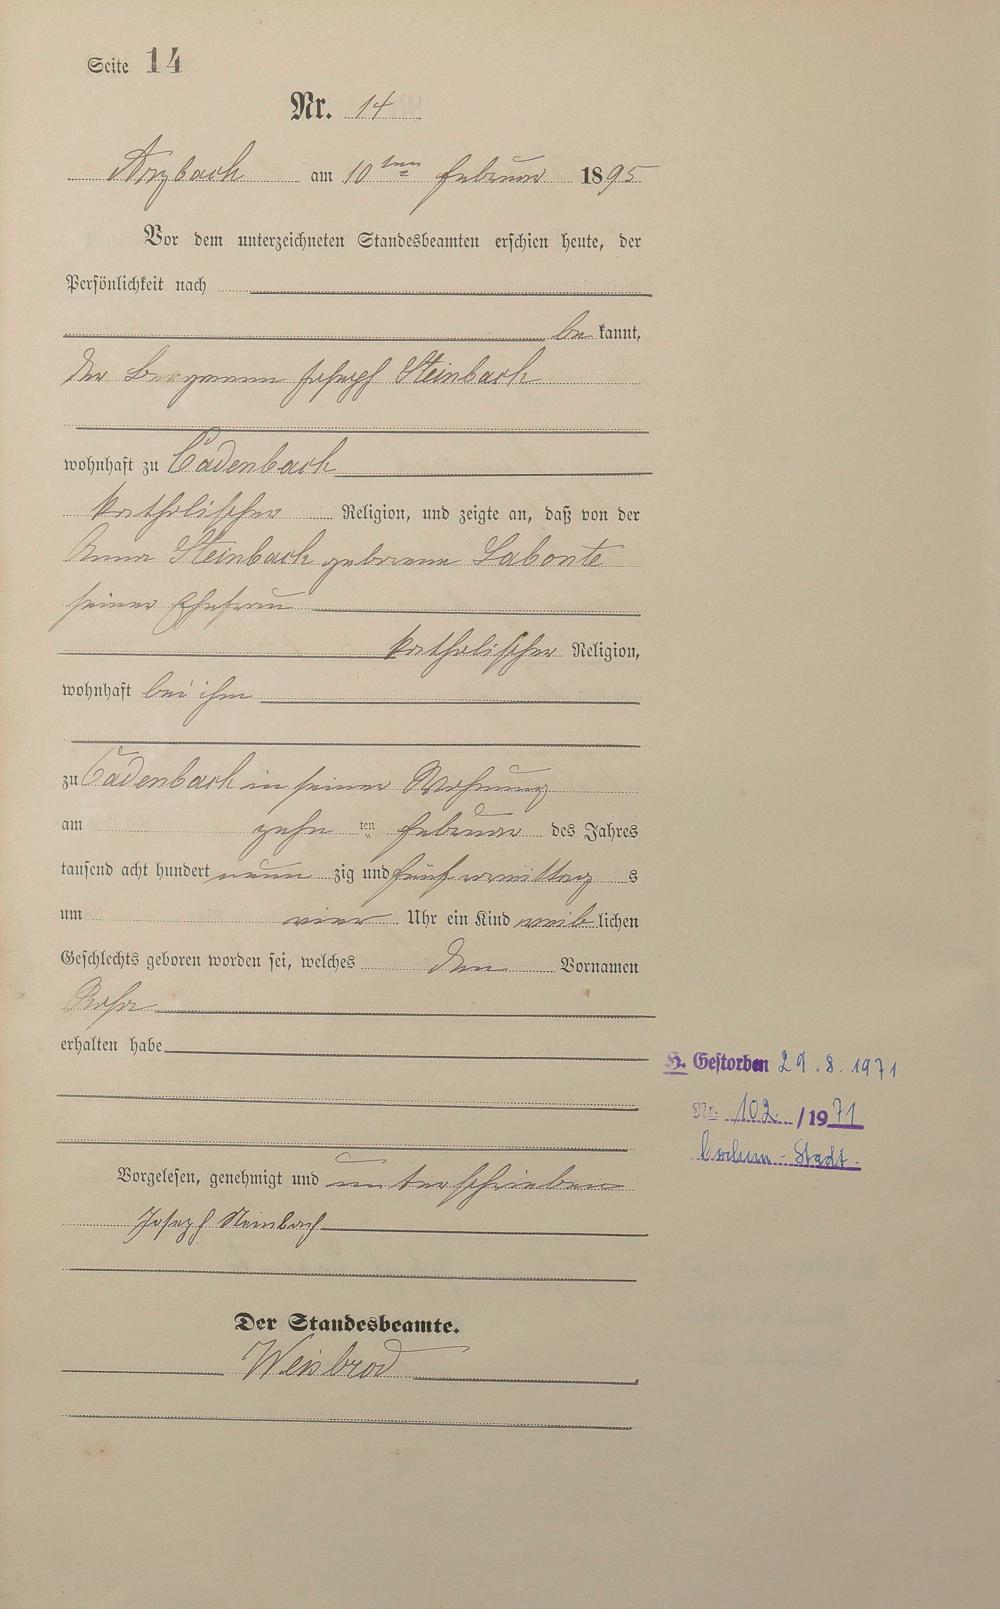 Seite 14
Nr. 14
Arzbach am 10ten Februar 1895
Vor dem unterzeichneten Standesbeamten erschien heute, der
Persönlichkeit nach
be kannt,
der Bergmann Joseph Steinbach
wohnhaft zu Cadenbach
katholischer Religion, und zeigte an, daß von der
Anna Steinbach geborene Labonte
seiner Ehefrau
katholischer Religion,
wohnhaft bei ihm
zu Cadenbach in seiner Wohnung
am zehn ten Februar des Jahres
tausend acht hundert neun zig und fünf vormittag s
um vier Uhr ein Kind weib lichen
Geschlechts geboren worden sei, welches den Vornamen
Rosa
erhalten habe
H. Gestorben 29.8.1971
Nr. 102 /1971
Bochum-Stadt.
Vorgelesen, genehmigt und unterschrieben
Joseph Steinbach
Der Standesbeamte.
Weisbrod